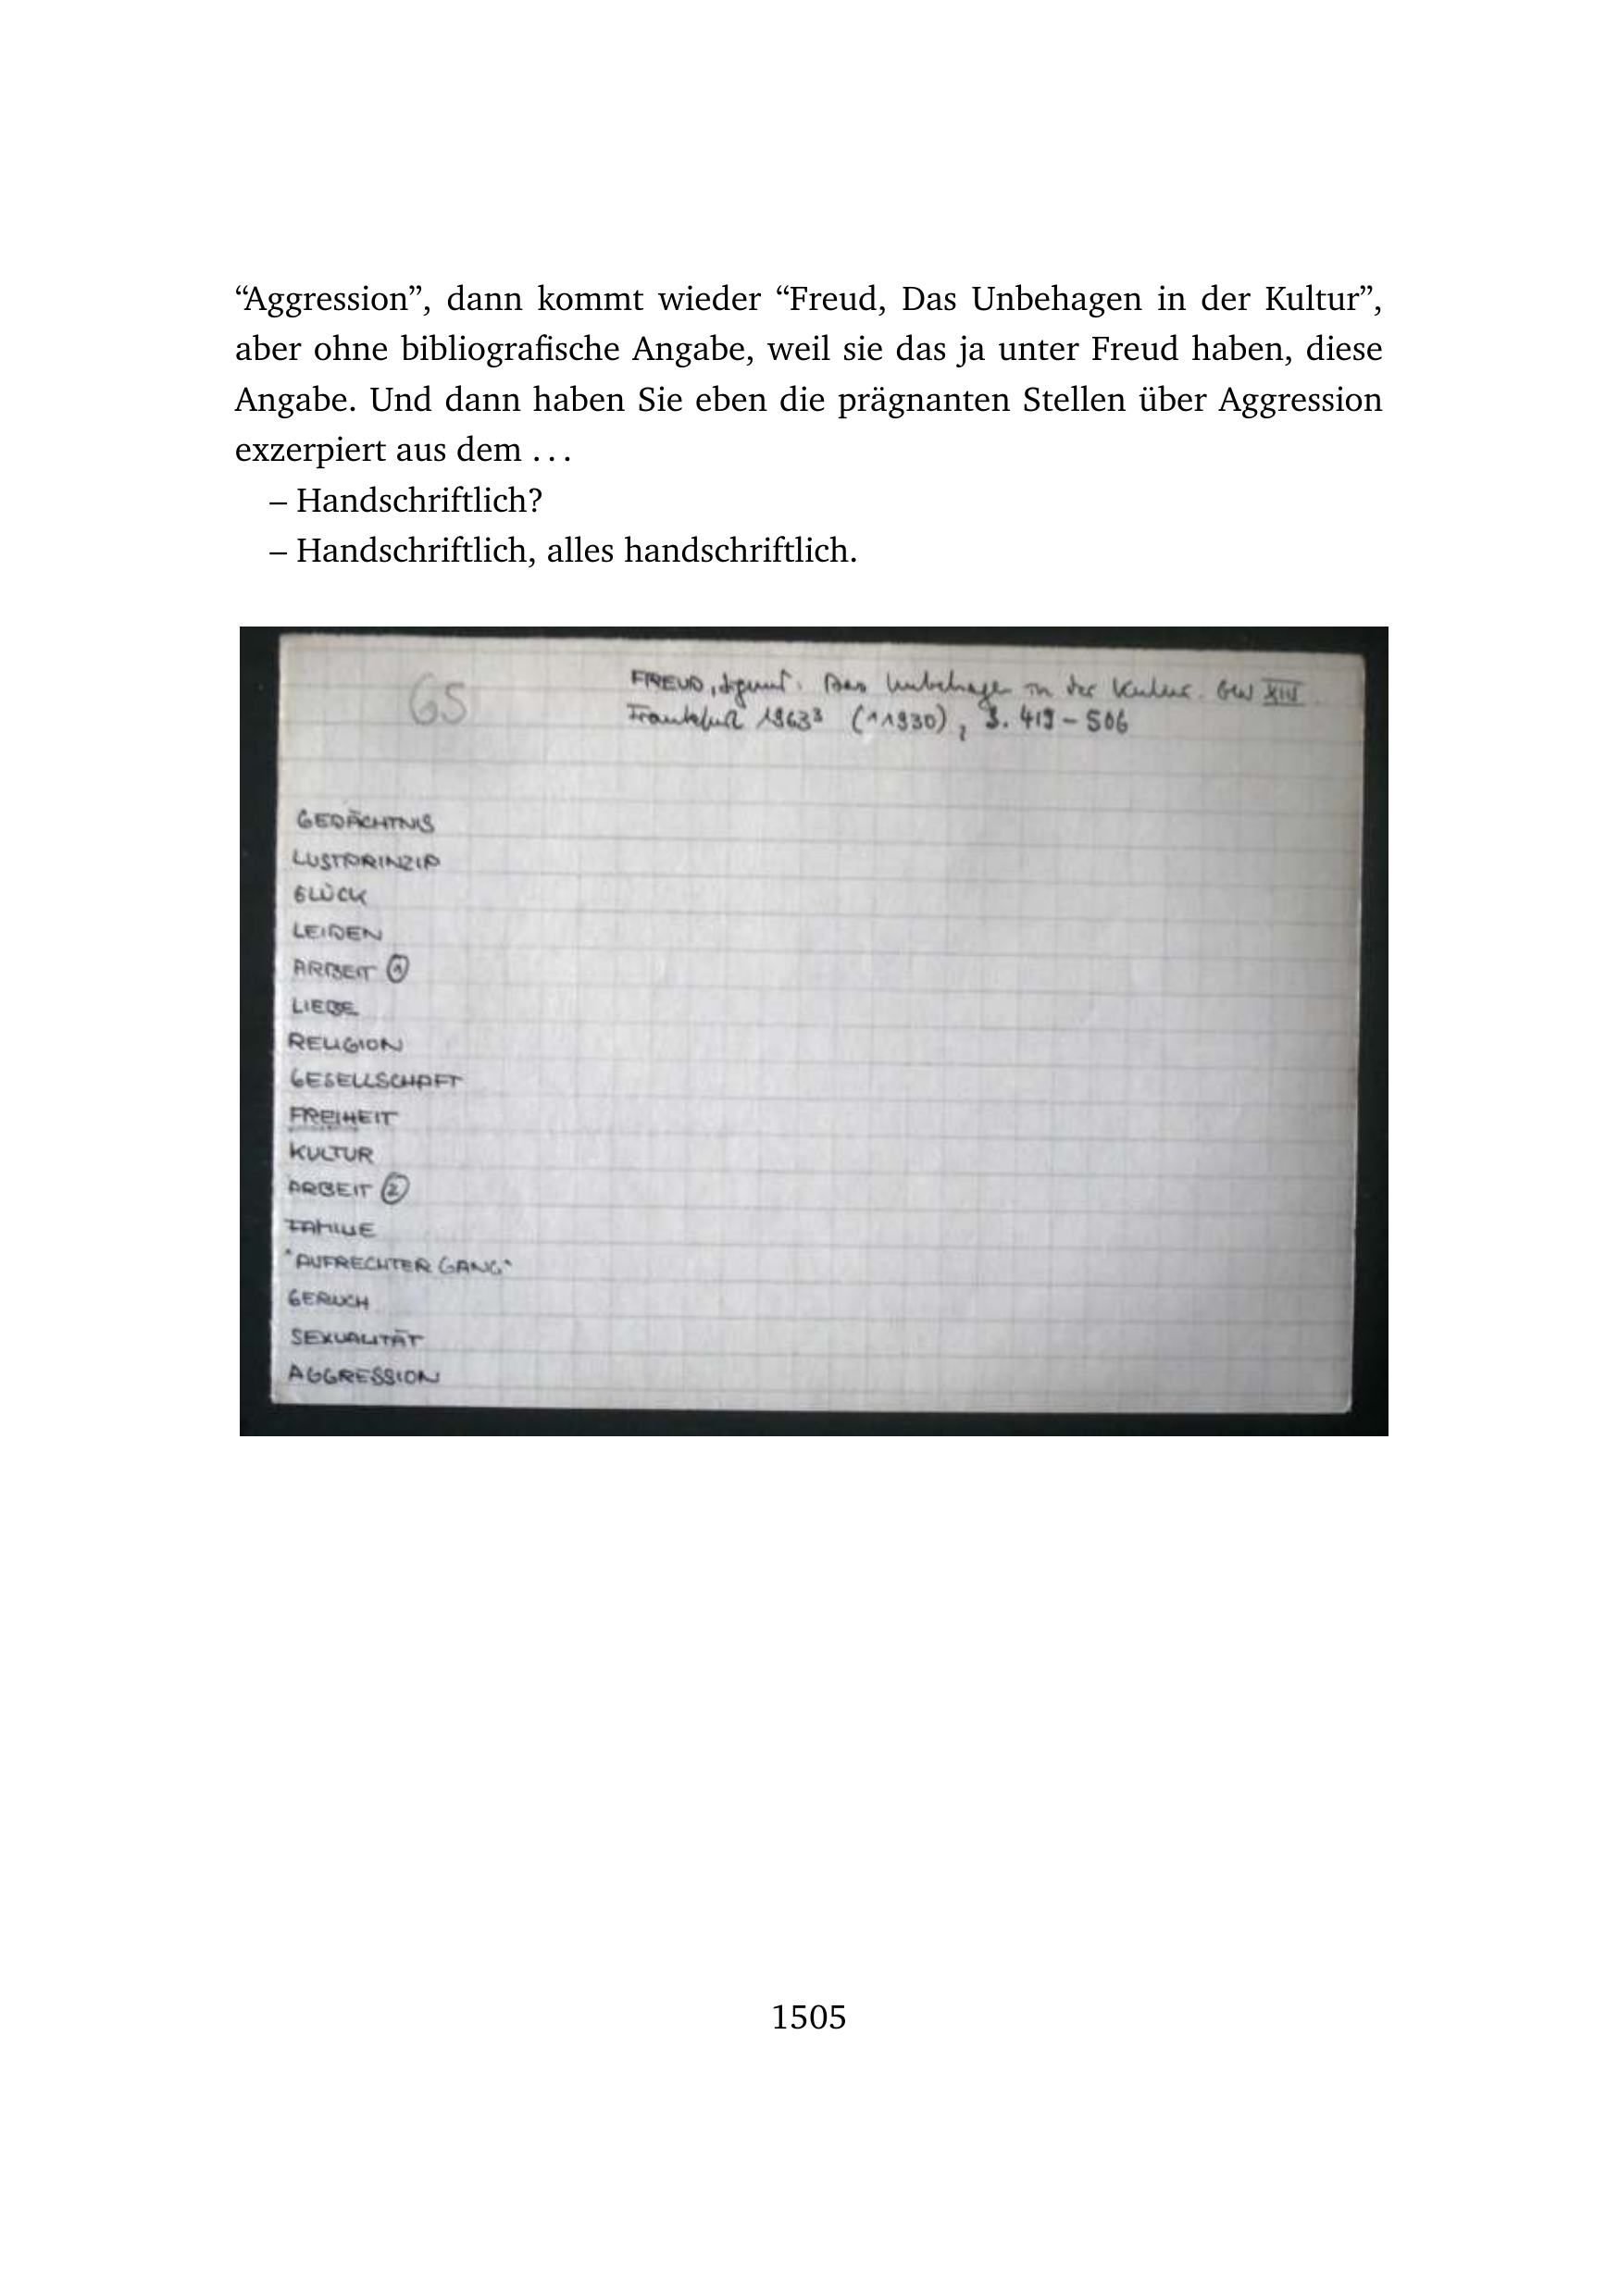 “Aggression”, dann kommt wieder “Freud, Das Unbehagen in der Kultur”,
aber ohne bibliografische Angabe, weil sie das ja unter Freud haben, diese
Angabe. Und dann haben Sie eben die prägnanten Stellen über Aggression
exzerpiert aus dem . . .
– Handschriftlich?
– Handschriftlich, alles handschriftlich.
GS
FREUD, Sigmund. Das Unbehagen in der Kultur. GW XIV
Frankfurt 1963³ (¹1930), S. 419 – 506
GEDÄCHTNIS
LUSTPRINZIP
GLÜCK
LEIDEN
ARBEIT ①
LIEBE
RELIGION
GESELLSCHAFT
FREIHEIT
KULTUR
ARBEIT ②
FAMILIE
"AUFRECHTER GANG"
GERUCH
SEXUALITÄT
AGGRESSION
1505